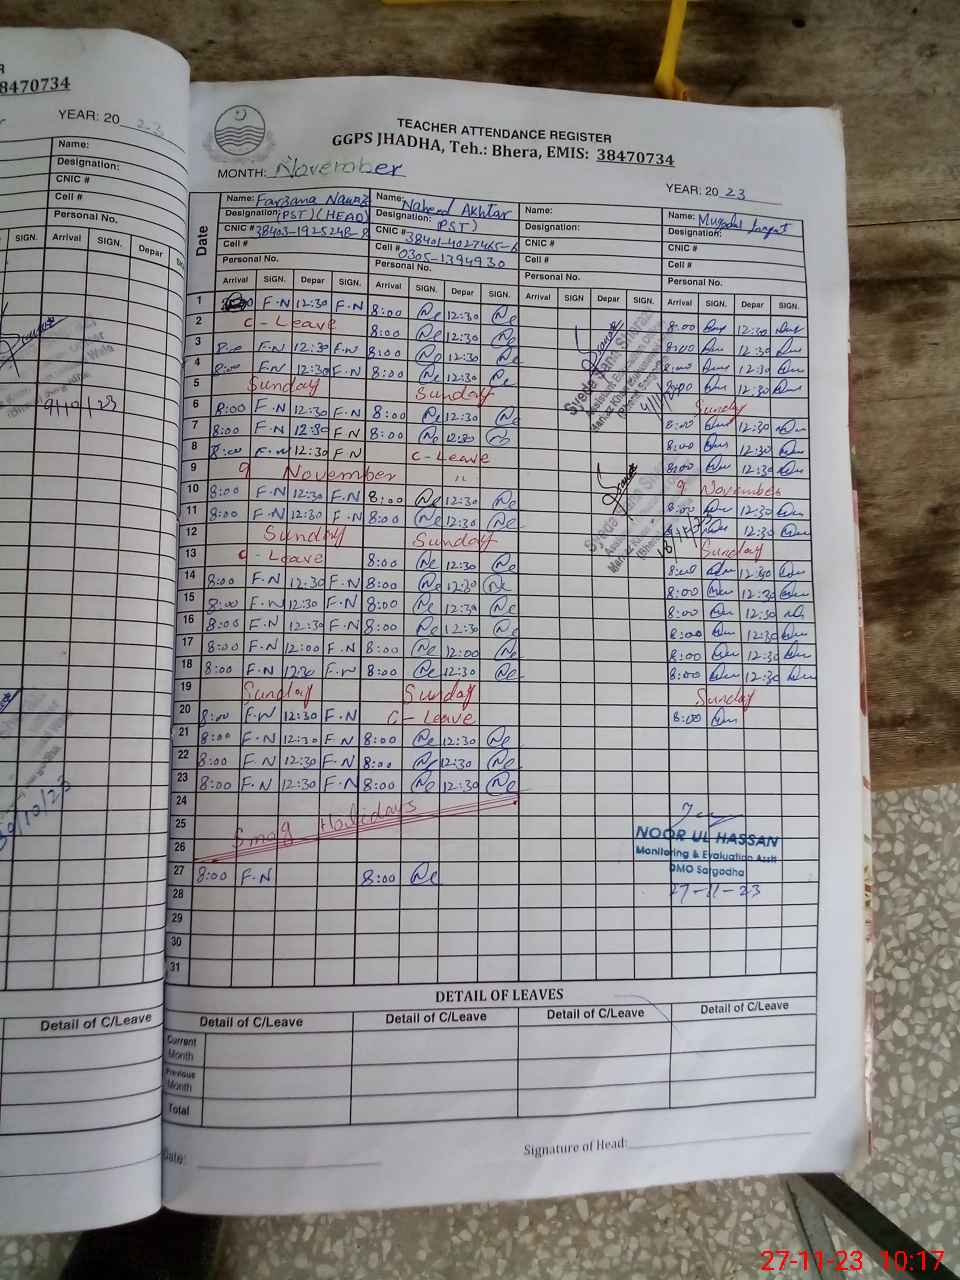 38470734
YEAR: 20 23
Name:
Designation:
CNIC #
Cell #
Personal No.
SIGN. Arrival SIGN. Depar
9/10/23
Detail of C/Leave Detail of C/Leave
TEACHER ATTENDANCE REGISTER
GGPS JHADHA, Teh.: Bhera, EMIS: 38470734
MONTH: November
YEAR: 20 23
Date
Name: Farzana Nawaz Name: Naheed Akhtar Name: Name:
Designation: (PST) (HEAD) Designation: (PST) Designation: Designation:
CNIC # 38403-1925248-8 CNIC # 38401-4027465-6 CNIC # CNIC #
Cell # Cell # 0305-1394930 Cell # Cell #
Personal No. Personal No. Personal No. Personal No.
Arrival SIGN. Depar SIGN. Arrival SIGN. Depar SIGN. Arrival SIGN Depar SIGN. Arrival SIGN. Depar SIGN.
1 F.N 12:30 F.N 8:00 Ne 12:30 Ne 8:00 12:30
2 C-Leave 8:00 Ne 12:30 Ne 8:00 12:30
3 8:00 F.N 12:30 F.N 8:00 Ne 12:30 Ne 8:00 12:30
4 8:00 F.N 12:30 F.N 8:00 Ne 12:30 Ne 8:00 12:30
5 Sunday Sunday Sunday
6 8:00 F.N 12:30 F.N 8:00 Ne 12:30 Ne 8:00 12:30
7 8:00 F.N 12:30 F N 8:00 Ne 12:30 Ne 8:00 12:30
8 8:00 F.N 12:30 F N C-Leave 8:00 12:30
9 9 November " 9 November
10 8:00 F.N 12:30 F.N 8:00 Ne 12:30 Ne 8:00 12:30
11 8:00 F.N 12:30 F.N 8:00 Ne 12:30 Ne 12:30
12 Sunday Sunday Sunday
13 C-Leave 8:00 Ne 12:30 Ne 8:00 12:30
14 8:00 F.N 12:30 F.N 8:00 Ne 12:30 Ne 8:00 12:30
15 8:00 F.N 12:30 F.N 8:00 Ne 12:30 Ne 8:00 12:30
16 8:00 F.N 12:30 F.N 8:00 Ne 12:30 Ne 8:00 12:30
17 8:00 F.N 12:00 F.N 8:00 Ne 12:00 Ne 8:00 12:30
18 8:00 F.N 12:30 F.N 8:00 Ne 12:30 Ne 8:00 12:30
19 Sunday Sunday Sunday
20 8:00 F.N 12:30 F.N C-Leave 8:00
21 8:00 F.N 12:30 F.N 8:00 Ne 12:30 Ne
22 8:00 F.N 12:30 F.N 8:00 Ne 12:30 Ne
23 8:00 F.N 12:30 F.N 8:00 Ne 12:30 Ne
24
25 Smog Holidays
26
27 8:00 F.N 8:00 Ne
28
29
30
31
NOOR UL HASSAN
Monitoring & Evaluation Asstt
DMO Sargodha
27-11-23
DETAIL OF LEAVES
Detail of C/Leave Detail of C/Leave Detail of C/Leave Detail of C/Leave
Current Month
Previous Month
Total
Date:
Signature of Head:
27-11-23 10:17